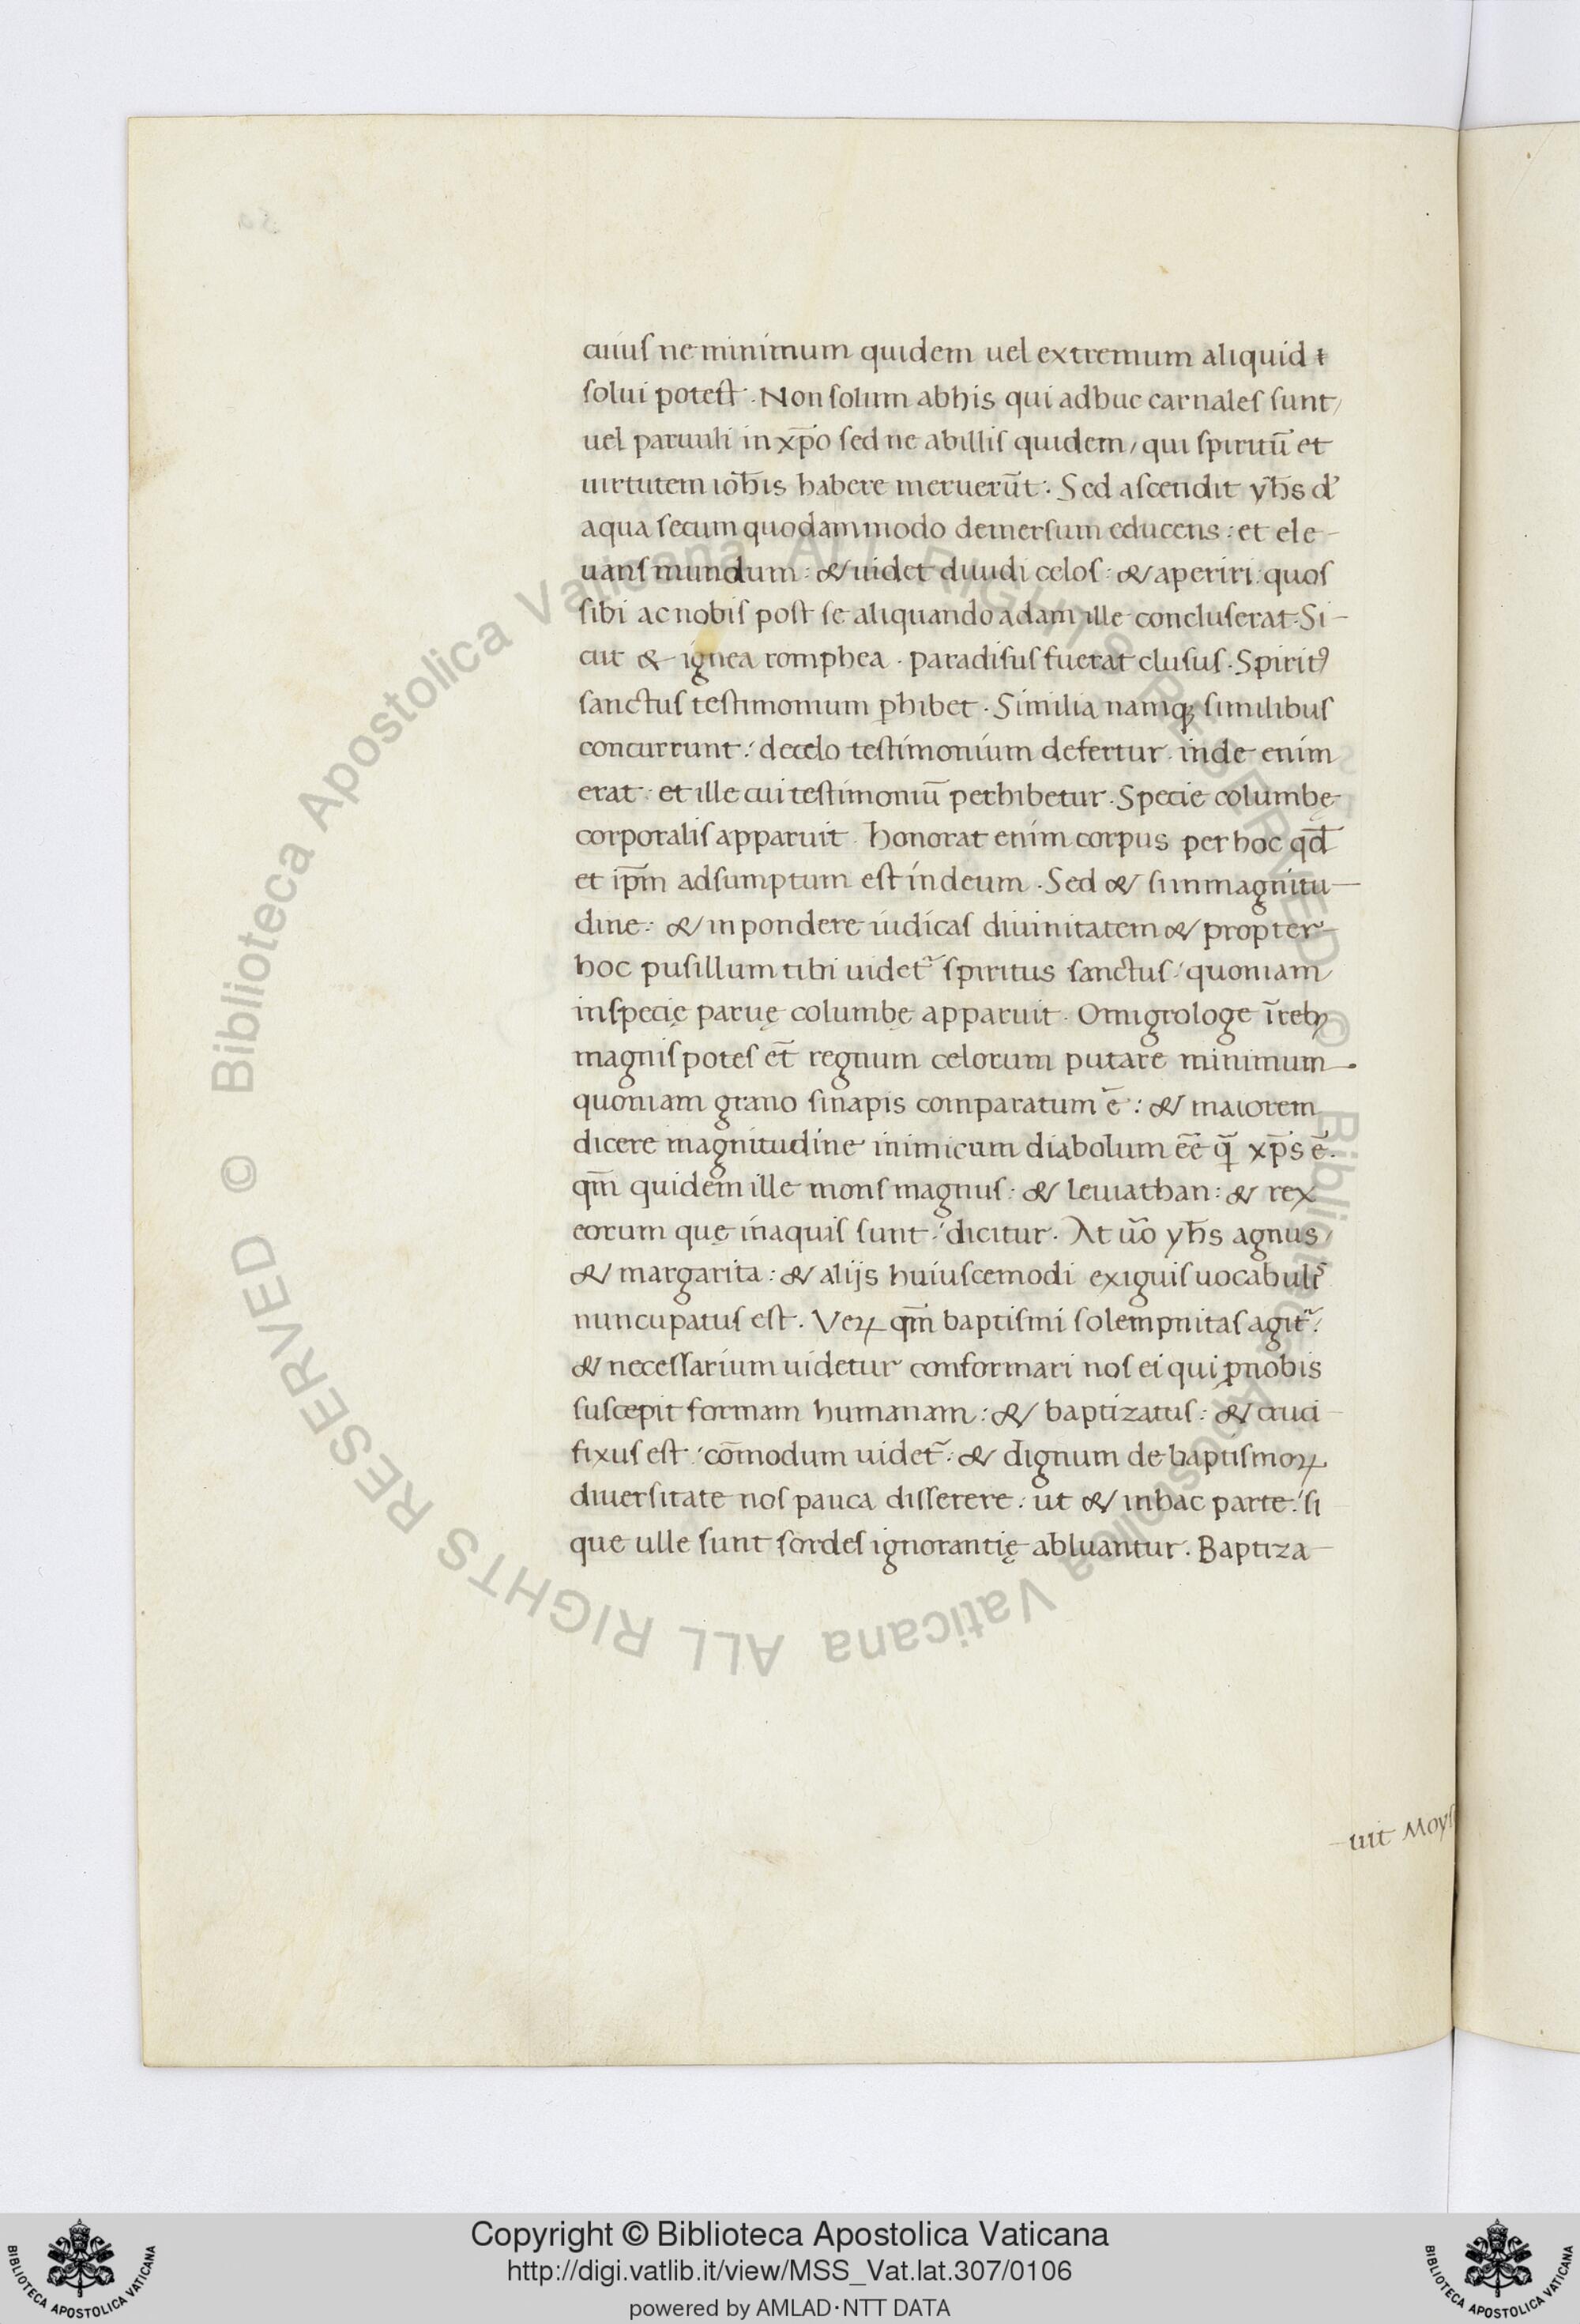 cuius ne minimum quidem uel extremum aliquid
solui potest. Non solum abhis qui adhuc carnales sunt/
uel paruuli in xp̄o sed ne abillis quidem/ qui spiritū et
uirtutem ioh̄is habere meruerūt: Sed ascendit yh̄s d'
aqua secum quodammodo demersum educens: et ele-
uans mundum: & uidet diuidi celos: & aperiri: quos
sibi ac nobis post se aliquando adam ille concluserat. Si-
cut & ignea romphea. paradisus fuerat clusus. Spiritꝰ
sanctus testimonium ꝑhibet. Similia namqꝫ similibus
concurrunt: decelo testimonium defertur. inde enim
erat: et ille cui testimoniū perhibetur. Specie columbę
corporalis apparuit. honorat enim corpus per hoc qd̄
et ip̄m adsumptum est indeum. Sed & si inmagnitu-
dine: & inpondere iudicas diuinitatem & propter-
hoc pusillum tibi uidet᷑ spiritus sanctus: quoniam
inspecię paruę columbę apparuit. Omigrologe ī rebꝫ
magnis potes et̄ regnum celorum putare minimum.
quoniam grano sinapis comparatum ē: & maiorem
dicere magnitudine inimicum diabolum eē̄ q̄ xp̄s ē.
qm̄ quidem ille mons magnus: & leuiathan: & rex
eorum quę inaquis sunt: dicitur. At ūo yh̄s agnus/
& margarita: & alijs huiuscemodi exiguis uocabulis
nuncupatus est. Veꝝ qm̄ baptismi solempnitas agit᷑:
& necessarium uidetur conformari nos ei qui ꝓnobis
suscepit formam humanam: & baptizatus: & cruci-
fixus est: cōmodum uidet᷑: & dignum de baptismoꝝ
diuersitate nos pauca disserere: ut & inhac parte: si
que ulle sunt sordes ignorantię abluantur. Baptiza-
-uit Moys
© Biblioteca Apostolica Vaticana ALL RIGHTS RESERVED © Biblioteca Apostolica Vaticana ALL RIGHTS RESERVED
Copyright © Biblioteca Apostolica Vaticana
http://digi.vatlib.it/view/MSS_Vat.lat.307/0106
powered by AMLAD·NTT DATA
BIBLIOTECA APOSTOLICA VATICANA
BIBLIOTECA APOSTOLICA VATICANA